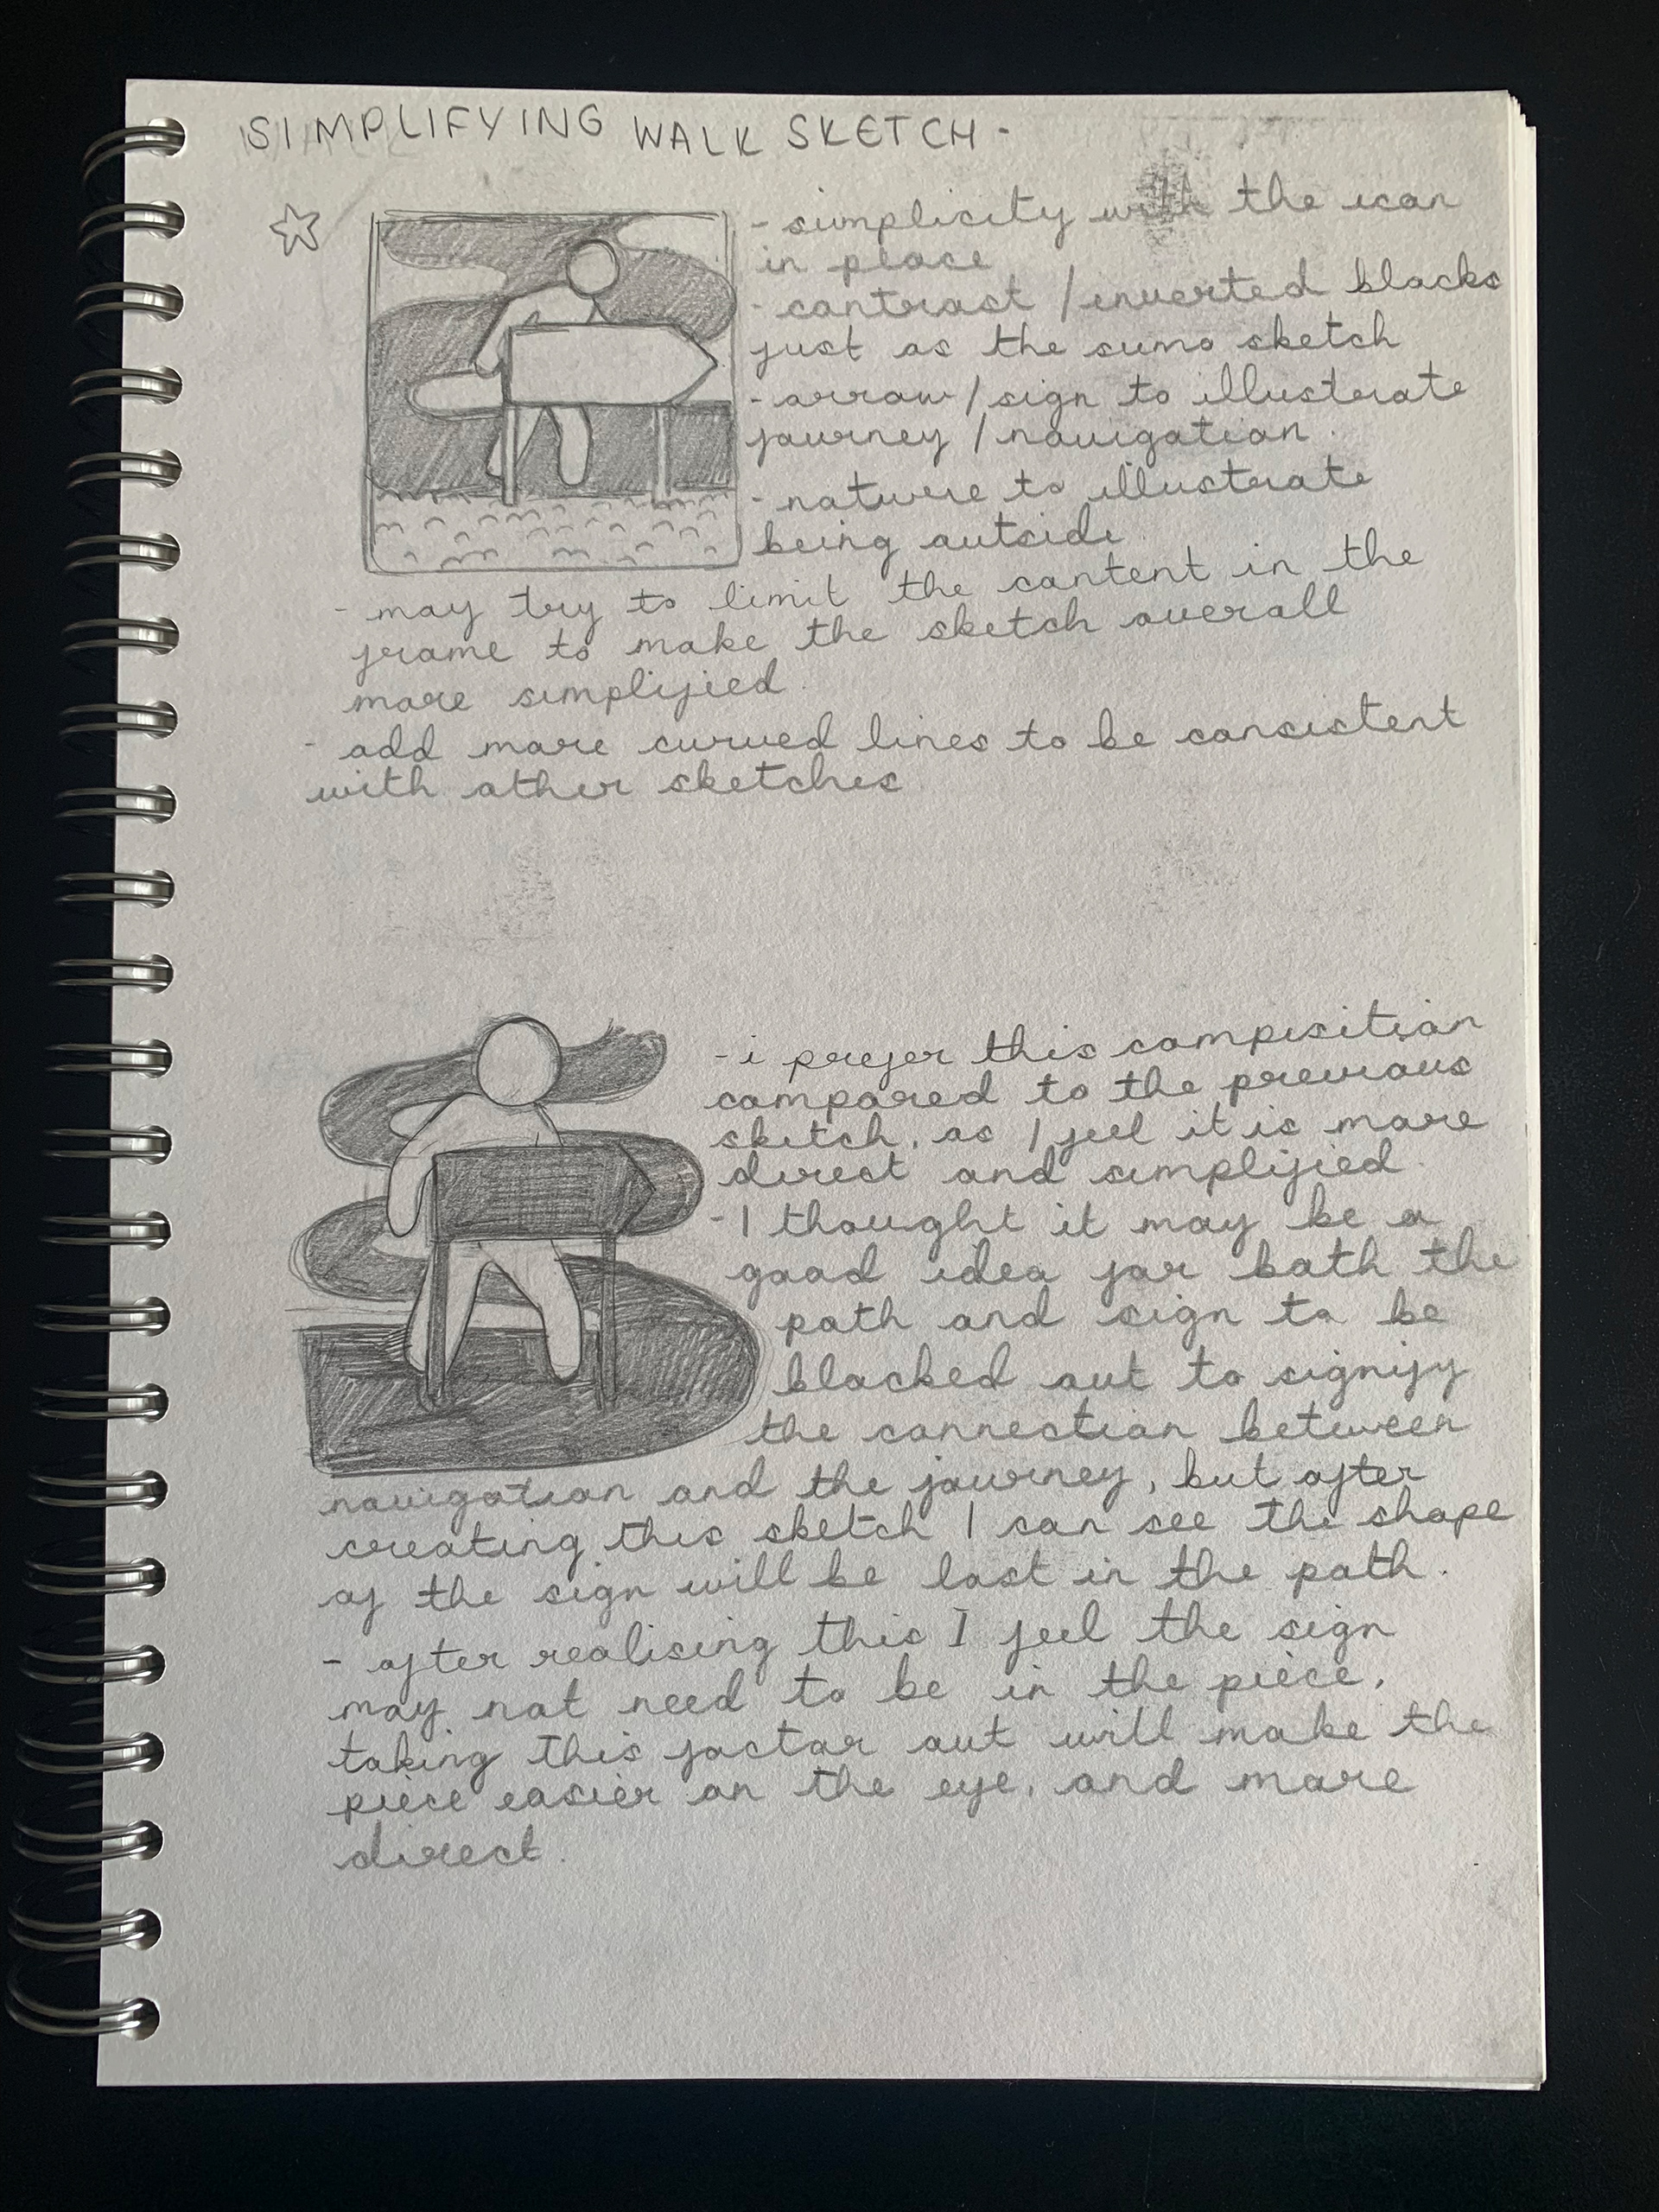 SIMPLIFYING WALK SKETCH -
- simplicity with the icon
in place
- contrast / inverted blacks
just as the sumo sketch
- arrow / sign to illustrate
journey / navigation.
- nature to illustrate
being outside
- may try to limit the content in the
frame to make the sketch overall
more simplified.
- add more curved lines to be consistent
with other sketches
- i prefer this composition
compared to the previous
sketch, as I feel it is more
direct and simplified.
- I thought it may be a
good idea for both the
path and sign to be
blacked out to signify
the connection between
navigation and the journey, but after
creating this sketch I can see the shape
of the sign will be lost in the path.
- after realising this I feel the sign
may not need to be in the piece,
taking this factor out will make the
piece easier on the eye, and more
direct.